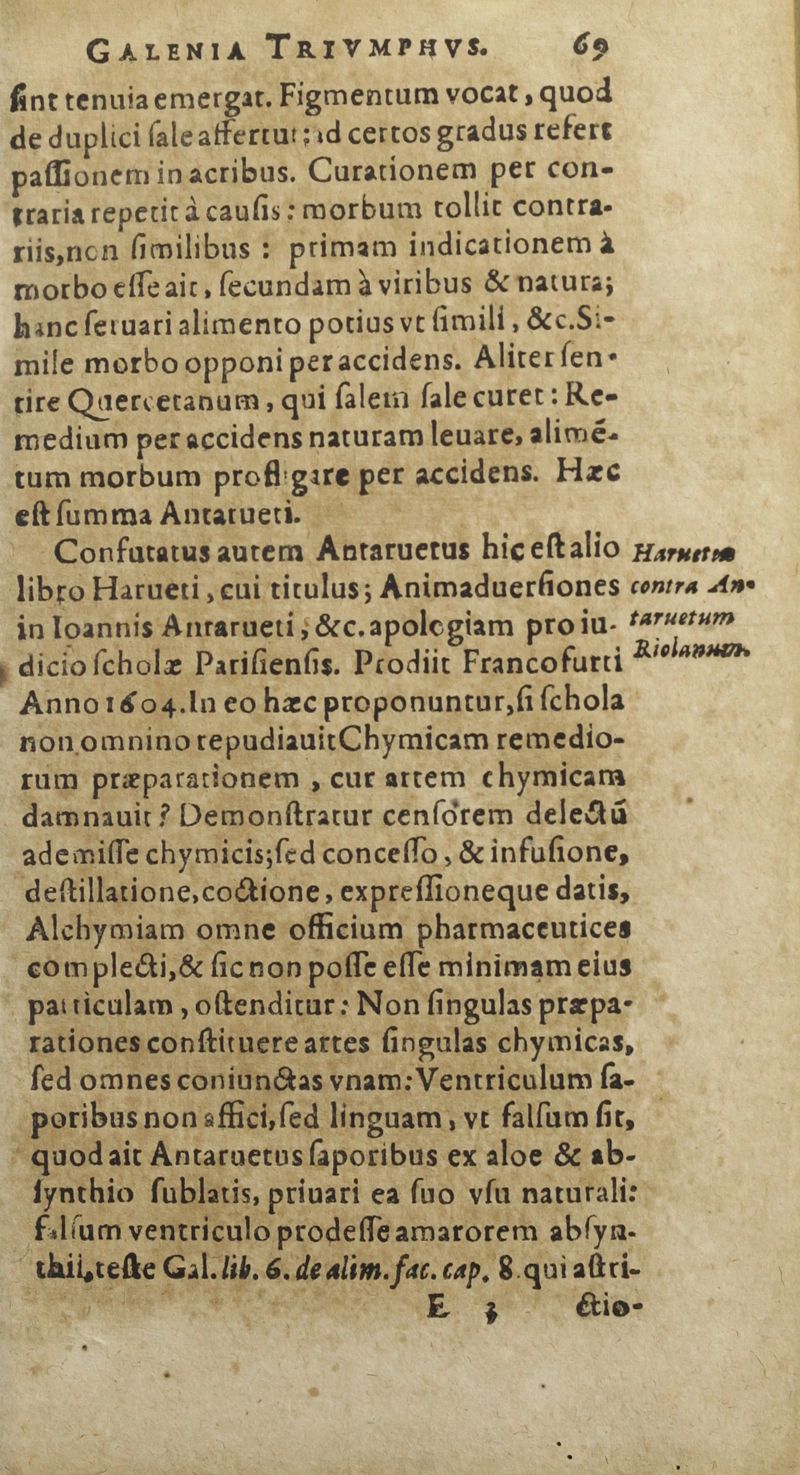 GALENIA TRIVMPHVS. 69
ſint tenuia emergat. Figmentum vocat, quod
de duplici ſale affertur; id certos gradus refert
paſſionem in acribus. Curationem per con-
traria repetit à cauſis: morbum tollit contra-
riis, non ſimilibus : primam indicationem à
morbo eſſe ait, ſecundam à viribus & natura;
hanc ſeruari alimento potius vt ſimili, &c. Si-
mile morbo opponi per accidens. Aliter ſen-
tire Quercetanum, qui ſalem ſale curet: Re-
medium per accidens naturam leuare, alimē-
tum morbum profligare per accidens. Hæc
eſt ſumma Antarueti.
Confutatus autem Antaruetus hic eſt alio
libro Harueti, cui titulus; Animaduerſiones
in Ioannis Antarueti, &c. apologiam pro iu-
dicio ſcholæ Pariſienſis. Prodiit Francofurti
Anno 1604. In eo hæc proponuntur, ſi ſchola
non omnino repudiauit Chymicam remedio-
rum præparationem , cur artem chymicam
damnauit? Demonſtratur cenſorem delectū
ademiſſe chymicis; ſed conceſſo, & infuſione,
deſtillatione, coctione, expreſſioneque datis,
Alchymiam omne officium pharmaceutices
complecti, & ſic non poſſe eſſe minimam eius
particulam, oſtenditur: Non ſingulas præpa-
rationes conſtituere artes ſingulas chymicas,
ſed omnes coniunctas vnam: Ventriculum ſa-
poribus non affici, ſed linguam, vt falſum ſit,
quod ait Antaruetus ſaporibus ex aloe & ab-
ſynthio ſublatis, priuari ea ſuo vſu naturali:
falſum ventriculo prodeſſe amarorem abſyn-
thii, teſte Gal. lib. 6. de alim. fac. cap. 8. qui aſtri-
E 3 ctio-
Haruetus
contra An-
taruetum
Riolanum.